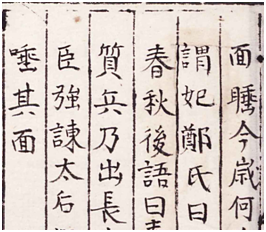 面睡今歲何
謂妃鄭氏曰
春秋後語曰
質兵乃出長
臣強諫太后
唾其面